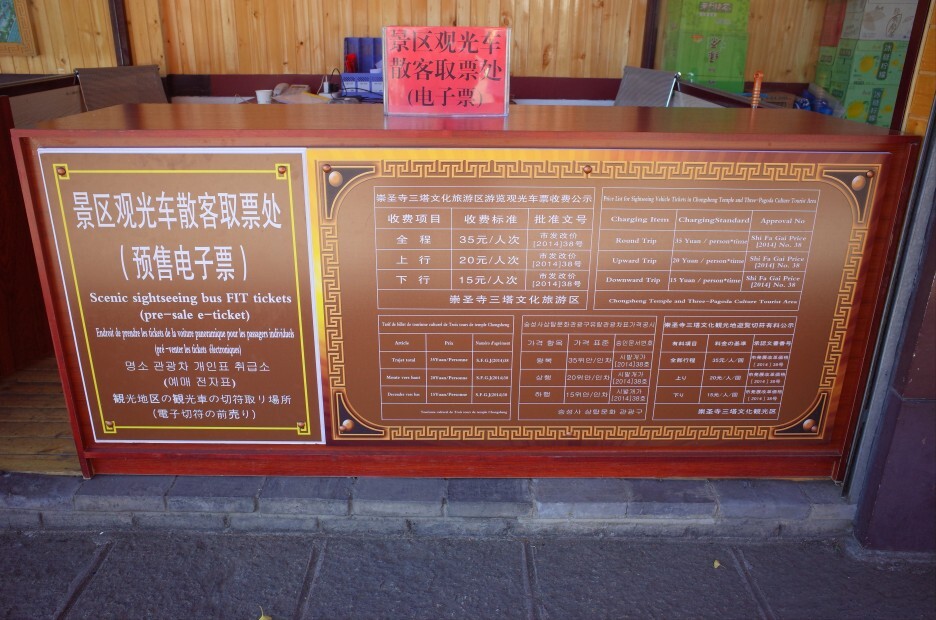 景区观光车
散客取票处
(电子票)
景区观光车散客取票处
（预售电子票）
Scenic sightseeing bus FIT tickets
(pre-sale e-ticket)
Endroit de prendre les tickets de la voiture panoramique pour les passagers individuels
(pré -venter les tickets électroniques)
명소 관광차 개인표 취급소
(예매 전자표)
観光地区の観光車の切符取り場所
(電子切符の前売り)
崇圣寺三塔文化旅游区游览观光车票收费公示
收费项目 收费标准 批准文号
全 程 35元/人次 市发改价[2014]38号
上 行 20元/人次 市发改价[2014]38号
下 行 15元/人次 市发改价[2014]38号
崇圣寺三塔文化旅游区
Price List for Sightseeing Vehicle Tickets in Chongsheng Temple and Three-Pagoda Culture Tourist Area
Charging Item ChargingStandard Approval No
Round Trip 35 Yuan / person*time Shi Fa Gai Price [2014] No. 38
Upward Trip 20 Yuan / person*time Shi Fa Gai Price [2014] No. 38
Downward Trip 15 Yuan / person*time Shi Fa Gai Price [2014] No. 38
Chongsheng Temple and Three-Pagoda Culture Tourist Area
Article Prix Numéro d'agrément
Trajet total 35Yuan/Personne
20Yuan/Personne
15Yuan/Personne
가격 항목 가격 표준 승인문서번호
왕복 35위안/인차 시발개가[2014]38호
상행 20위안/인차 시발개가[2014]38호
하행 15위안/인차 시발개가[2014]38호
숭성사 삼탑문화 관광구
崇圣寺三塔文化観光地遊覧切符有料公示
有料項目 料金の基準 承認文書番号
全部行程 35元/人/回
上り 20元/人/回
下り 15元/人/回
崇圣寺三塔文化観光区